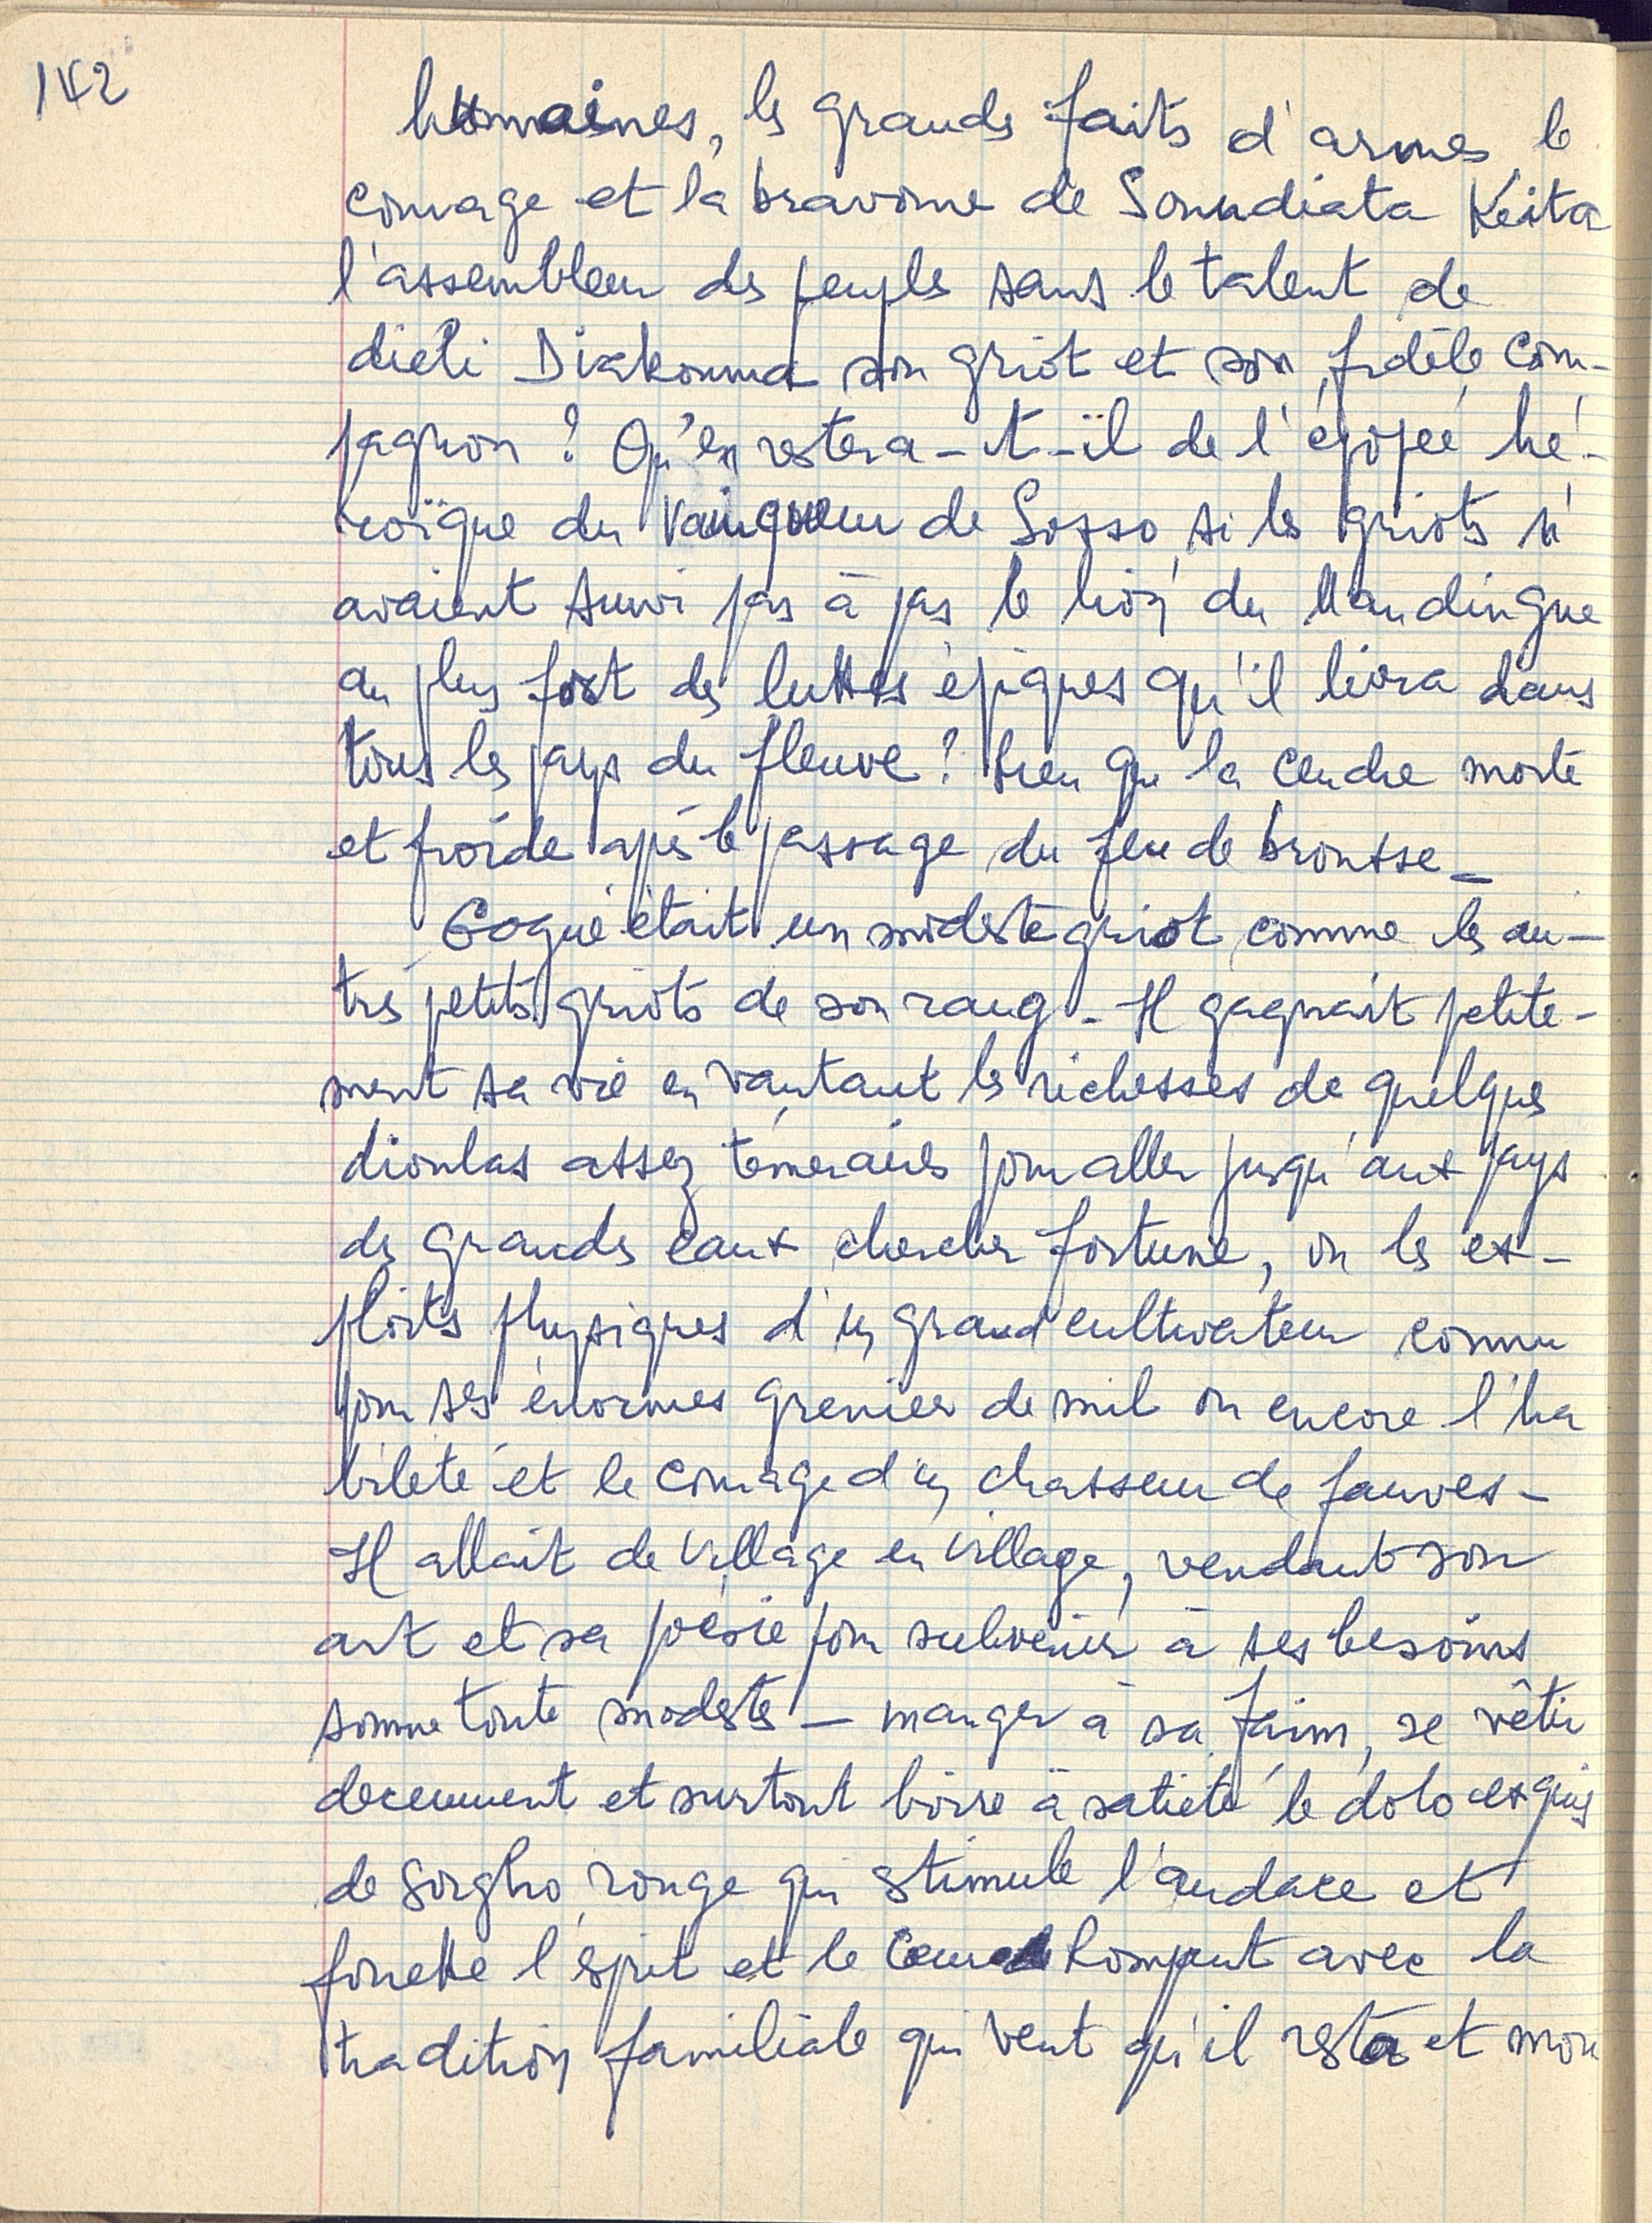 142
humaines, les grands faits d'armes le
courage et la bravoure de Soundiata Keita
l'assembleur des peuples sans le talent de
diéli Diakouma son griot et son fidèle com-
pagnon ? Qu'en restera-t-il de l'épopée hé-
roïque du vainqueur de Sosso si les griots n'
avaient suivi pas à pas le lion du Mandingue
au plus fort des luttes épiques qu'il livra dans
tous les pays du fleuve ? Rien que la cendre morte
et froide après le passage du feu de brousse_
Gogué était un modeste griot comme les au-
tres petits griots de son rang_ Il gagnait petite-
ment sa vie en vantant les richesses de quelques
dioulas assez téméraires pour aller jusqu'aux pays
des grandes eaux chercher fortune, ou les ex-
ploits physiques d'un grand cultivateur connu
pour ses énormes grenier de mil ou encore l'ha
bileté et le courage d'un chasseur de fauves_
Il allait de village en village, vendant son
art et sa poésie pour subvenir à ses besoins
somme toute modestes_ manger à sa faim, se vêtir
decemment et surtout boire à satiété le dolo exquis
de sorgho rouge qui stimule l'audace et
fouette l'esprit et le coeur Rompant avec la
tradition familiale qui veut qu'il resta et mou